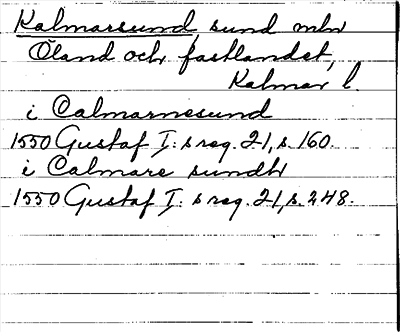 Kalmarsund, sund mln
Öland och fastlandet,
Kalmar l.
i Calmarnesund
1550 Gustaf I:s reg. 21, s. 160.
i Calmare sundh
1550 Gustaf I:s reg. 21, s. 248.